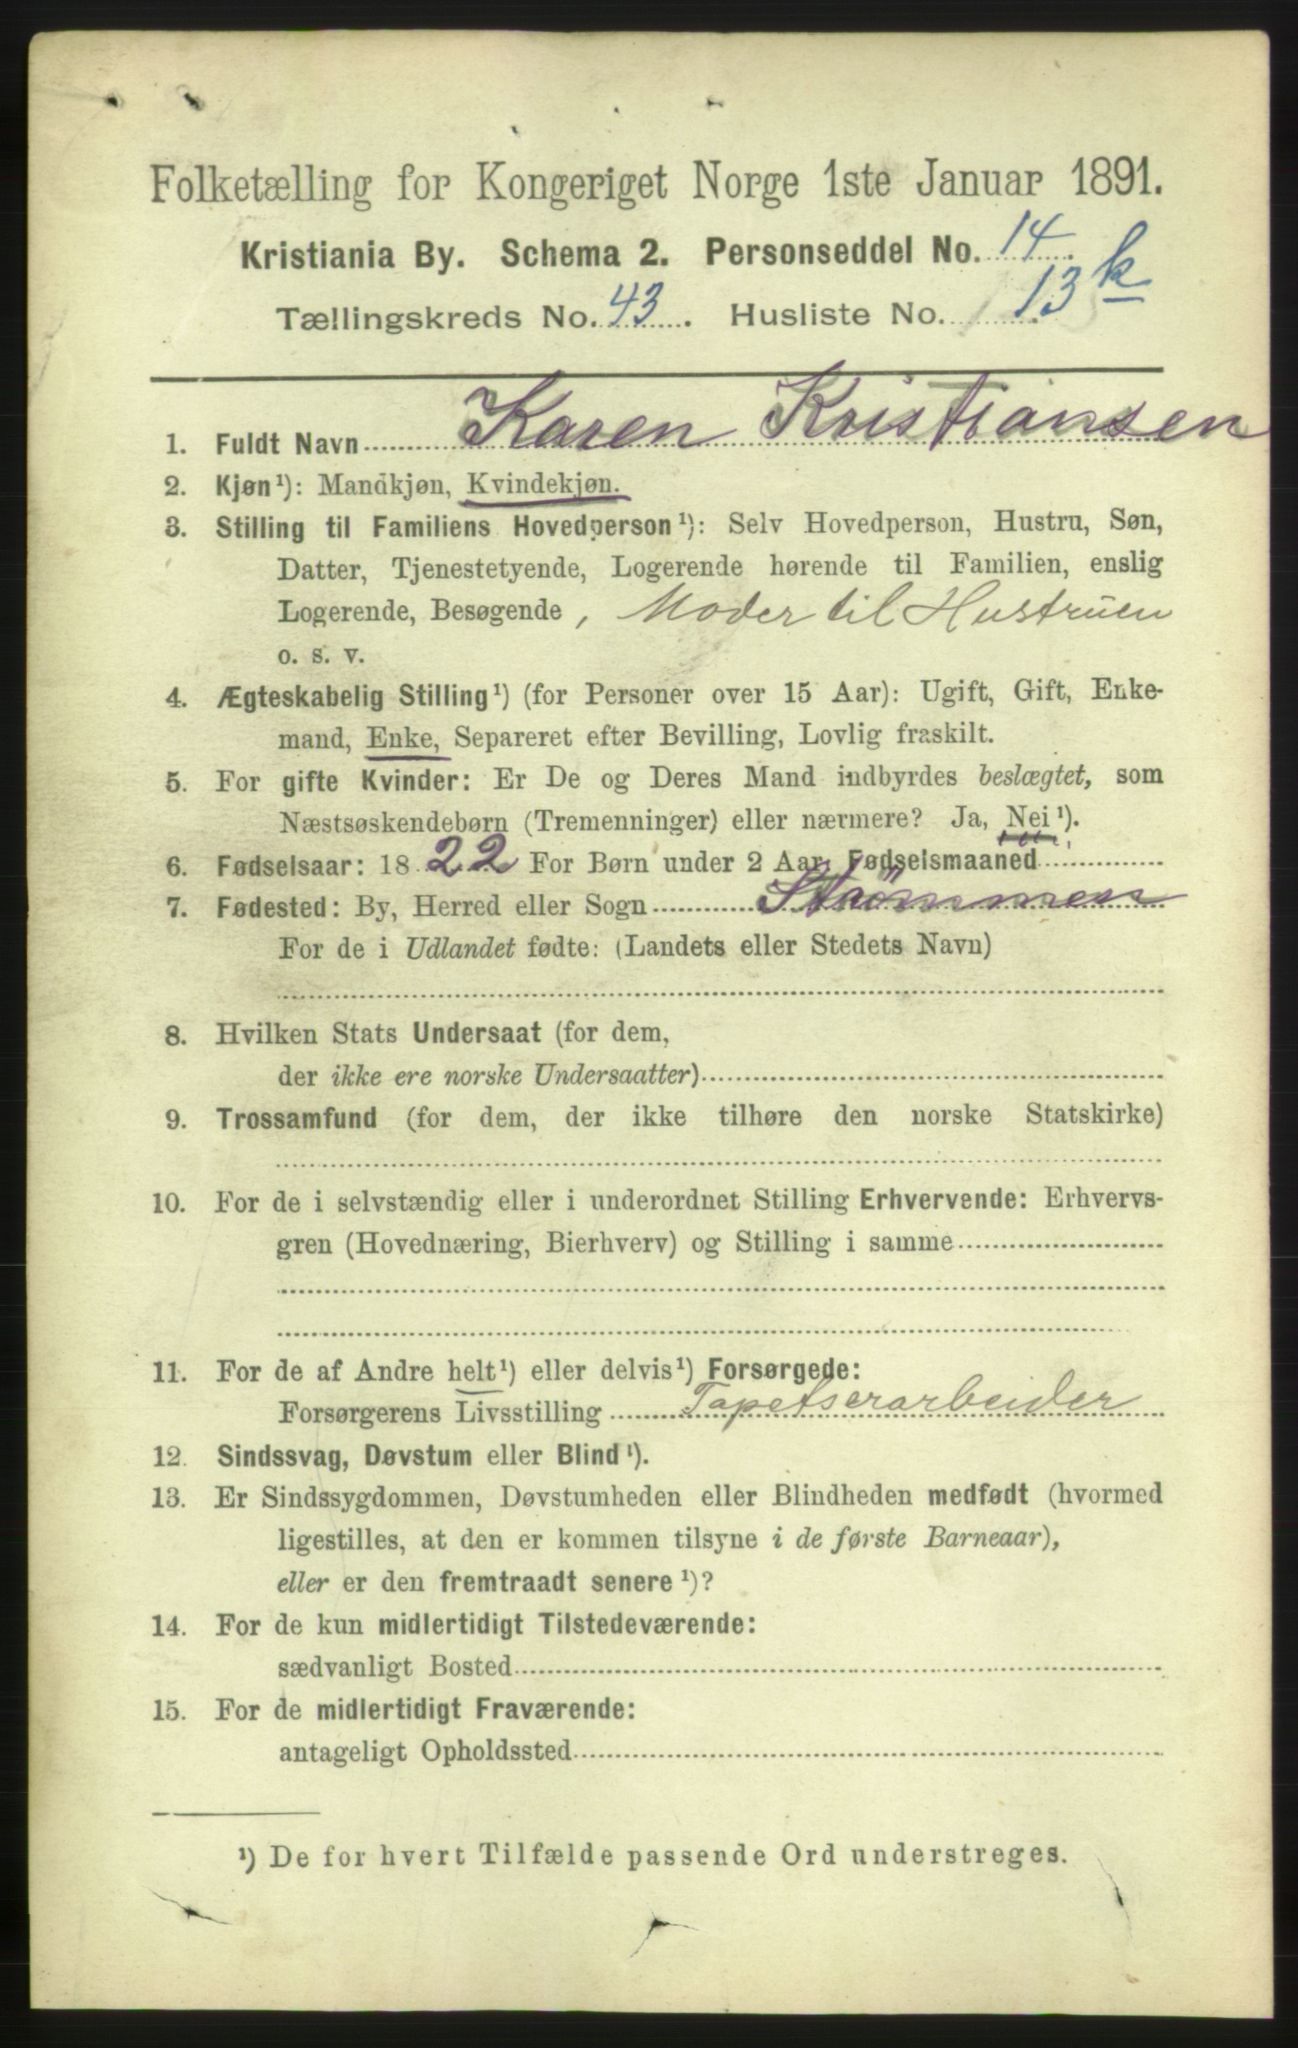 Folketælling for Kongeriget Norge 1ste Januar 1891.
Kristiania By. Schema 2. Personseddel No. 14
Tællingskreds No. 43. Husliste No. 13 k
1. Fuldt Navn Karen Kristiansen
2. Kjøn¹): Mandkjøn, Kvindekjøn.
3. Stilling til Familiens Hovedperson¹): Selv Hovedperson, Hustru, Søn,
Datter, Tjenestetyende, Logerende hørende til Familien, enslig
Logerende, Besøgende, Moder til Hustruen
o. s. v.
4. Ægteskabelig Stilling¹) (for Personer over 15 Aar): Ugift, Gift, Enke-
mand, Enke, Separeret efter Bevilling, Lovlig fraskilt.
5. For gifte Kvinder: Er De og Deres Mand indbyrdes beslægtet, som
Næstsøskendebørn (Tremenninger) eller nærmere? Ja, Nei¹).
6. Fødselsaar: 1822 For Børn under 2 Aar, Fødselsmaaned
7. Fødested: By, Herred eller Sogn Strömmen
For de i Udlandet fødte: (Landets eller Stedets Navn)
8. Hvilken Stats Undersaat (for dem,
der ikke ere norske Undersaatter)
9. Trossamfund (for dem, der ikke tilhøre den norske Statskirke)
10. For de i selvstændig eller i underordnet Stilling Erhvervende: Erhvervs-
gren (Hovednæring, Bierhverv) og Stilling i samme
11. For de af Andre helt¹) eller delvis¹) Forsørgede:
Forsørgerens Livsstilling Tapetserarbeider
12. Sindssvag, Døvstum eller Blind¹).
13. Er Sindssygdommen, Døvstumheden eller Blindheden medfødt (hvormed
ligestilles, at den er kommen tilsyne i de første Barneaar),
eller er den fremtraadt senere¹)?
14. For de kun midlertidigt Tilstedeværende:
sædvanligt Bosted
15. For de midlertidigt Fraværende:
antageligt Opholdssted
¹) De for hvert Tilfælde passende Ord understreges.